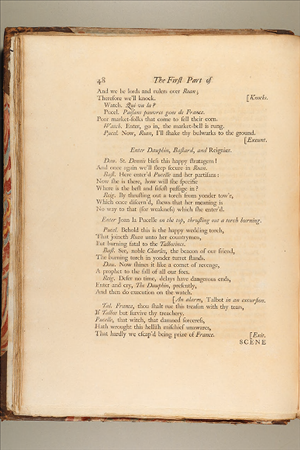 48 The First Part of
And we be lords and rulers over Roan;
Therefore we'll knock. [Knocks.
Watch. Qui va la?
Pucel. Paisans pauvres gens de France.
Poor market-folks that come to sell their corn.
Watch. Enter, go in, the market-bell is rung.
Pucel. Now, Roan, I'll shake thy bulwarks to the ground.
[Exeunt.
Enter Dauphin, Bastard, and Reignier.
Dau. St. Dennis bless this happy stratagem!
And once again we'll sleep secure in Roan.
Bast. Here enter'd Pucelle and her partisans:
Now she is there, how will she specifie
Where is the best and safest passage in?
Reig. By thrusting out a torch from yonder tow'r,
Which once discern'd, shews that her meaning is
No way to that (for weakness) which she enter'd.
Enter Joan la Pucelle on the top, thrusting out a torch burning.
Pucel. Behold this is the happy wedding torch,
That joineth Roan unto her countrymen,
But burning fatal to the Talbotites.
Bast. See, noble Charles, the beacon of our friend,
The burning torch in yonder turret stands.
Dau. Now shines it like a comet of revenge,
A prophet to the fall of all our foes.
Reig. Defer no time, delays have dangerous ends,
Enter and cry, The Dauphin, presently,
And then do execution on the watch.
[An alarm, Talbot in an excursion.
Tal. France, thou shalt rue this treason with thy tears,
If Talbot but survive thy treachery.
Pucelle, that witch, that damned sorceress,
Hath wrought this hellish mischief unawares,
That hardly we escap'd being prize of France. [Exit.
SCENE